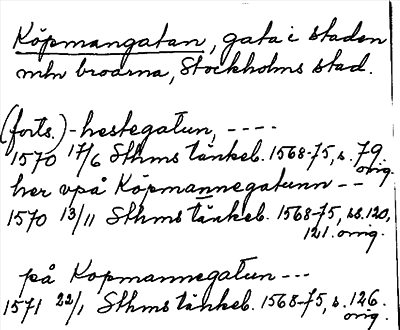 Köpmangatan, gata i staden
mln broarna, Stockholms stad.
(forts.)-hestegatun, ----
1570 17/6 Sthms tänkeb. 1568-75, s. 79
orig.
her vpå Köpmannegatunn --
1570 13/11 Sthms tänkeb. 1568-75, ss. 120,
121. orig.
på Kopmannegatun ---
1571 22/1 Sthms tänkeb. 1568-75, s. 126.
orig.